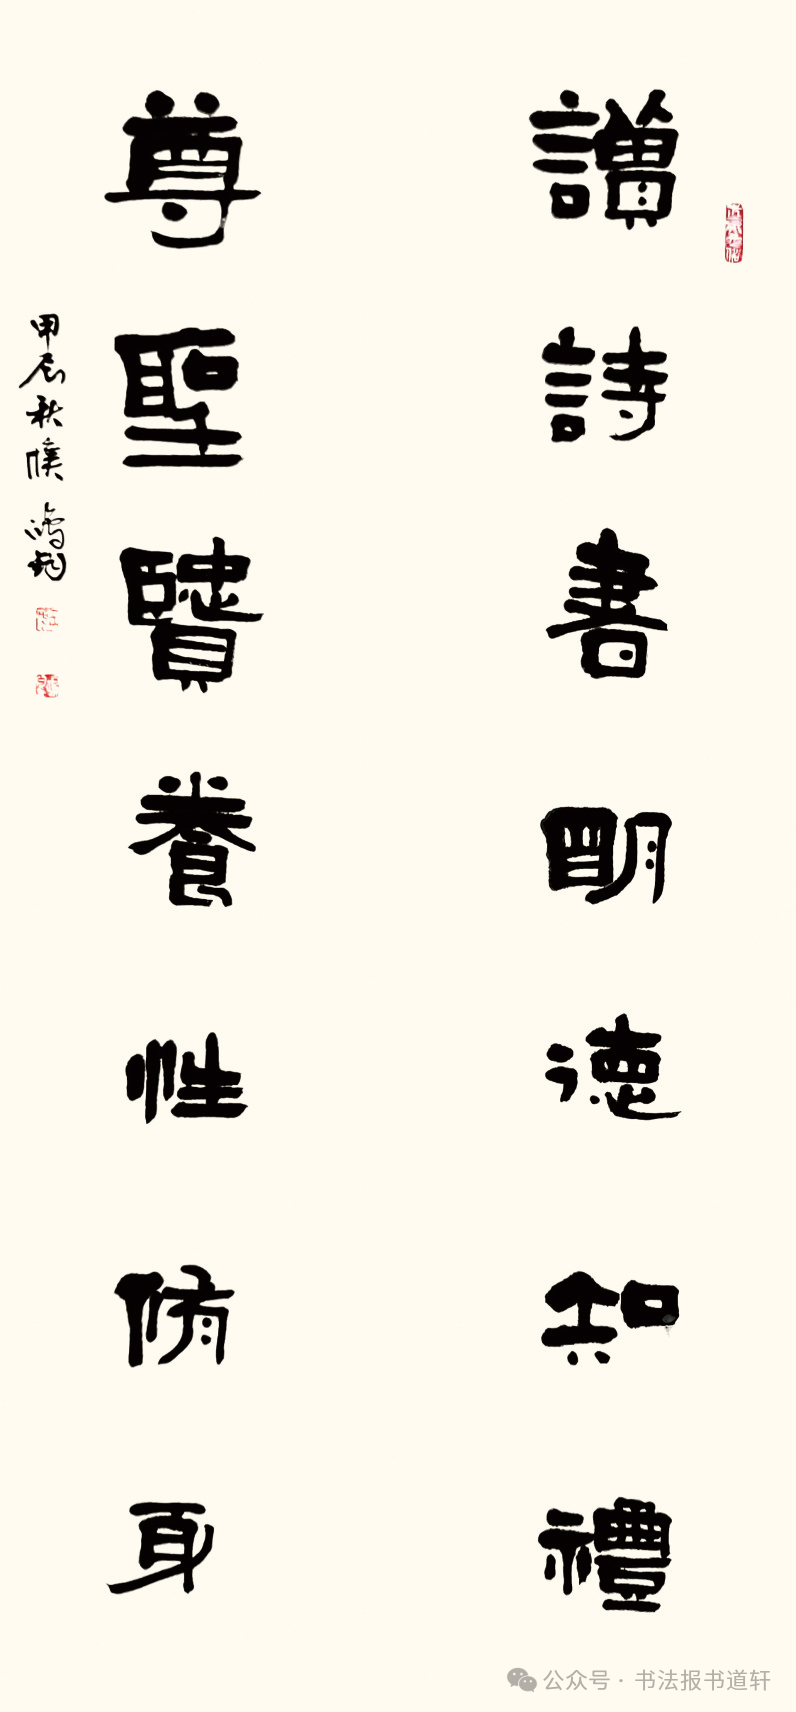 讀詩書明德知禮
尊聖賢養性脩身
甲辰秋慎鴻鈞
公众号·书法报书道轩